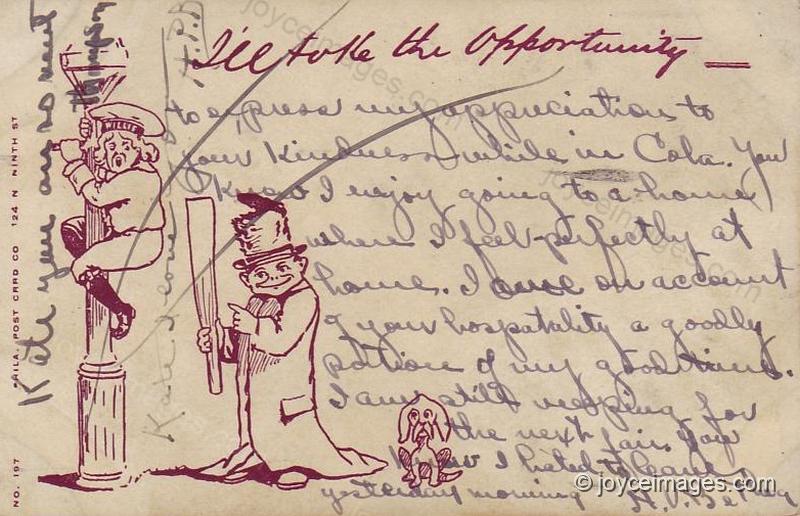 I'll take the Opportunity
to express my appreciation to
your kindness while in Cola. You
know I enjoy going to a home
where I feel perfectly at
home. I owe on account
of your hospitality a goodly
portion of my good time.
I am still weeping for
the next fair. You
know I hated to leave
yesterday morning
WILLIE
Kate you are so
Thompson
Kate I love
PHILA. POST CARD CO 124 N NINTH ST
NO. 197
© joyceimages.com